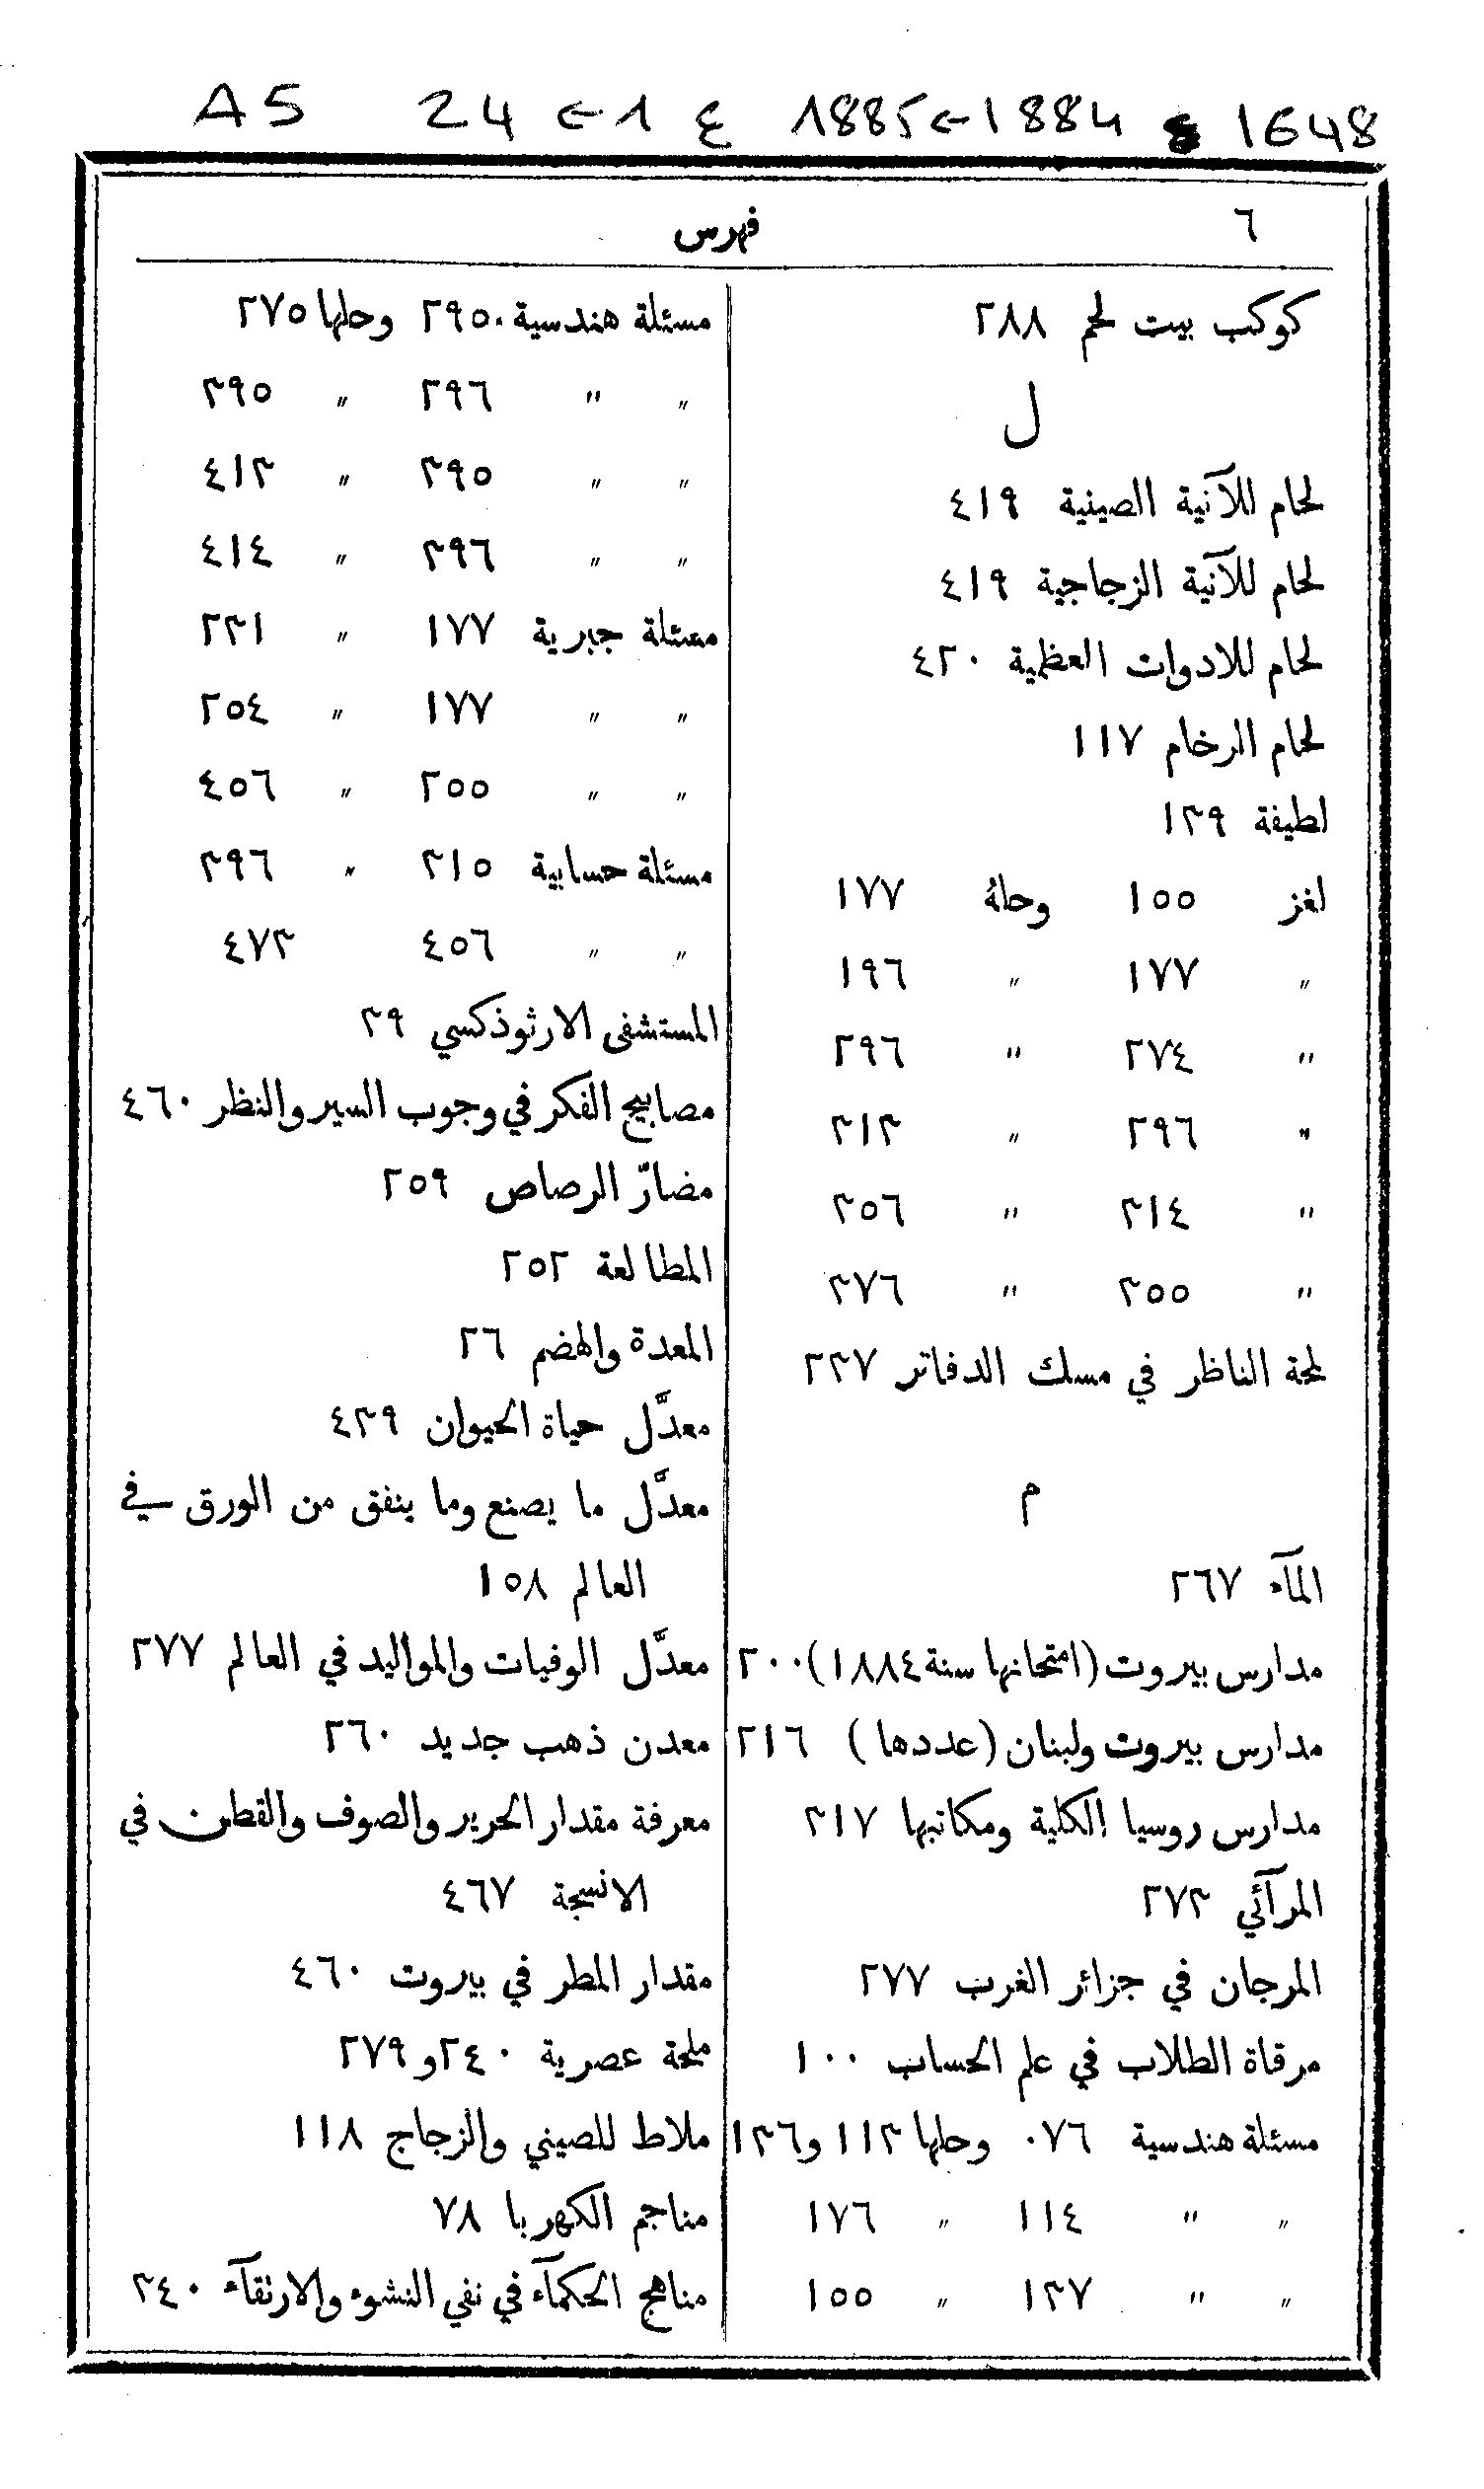 1648 ع 1884→1885 ع 1→24 A5
٦
فهرس
كوكب بيت لحم ٢٨٨
ل
لحام للآنية الصينية ٤١٩
لحام للآنية الزجاجية ٤١٩
لحام للادوات العظمية ٤٢٠
لحام الرخام ١١٧
لطيفة ١٣٩
لغز ١٥٥ وحلهُ ١٧٧
" ١٧٧ " ١٩٦
" ٢٧٤ " ٢٩٦
" ٢٩٦ " ٣١٣
" ٣١٤ " ٣٥٦
" ٣٥٥ " ٣٧٦
لمحة الناظر في مسك الدفاتر ٢٣٧
م
المآء ٢٦٧
مدارس بيروت (امتحانها سنة ١٨٨٤) ٢٠٠
مدارس بيروت ولبنان (عددها) ٢١٦
مدارس روسيا الكلية ومكاتبها ٣١٧
المرآئي ٢٧٣
المرجان في جزائر الغرب ٢٧٧
مرقاة الطلاب في علم الحساب ١٠٠
مسئلة هندسية ٠٧٦ وحلها ١١٣ و١٣٦
" " ١١٤ " ١٧٦
" " ١٣٧ " ١٥٥
مسئلة هندسية ٢٩٥٠ وحلها ٢٧٥
" " ٢٩٦ " ٣٩٥
" " ٣٩٥ " ٤١٣
" " ٣٩٦ " ٤١٤
مسئلة جبرية ١٧٧ " ٢٣١
" " ١٧٧ " ٢٥٤
" " ٢٥٥ " ٤٥٦
مسئلة حسابية ٣١٥ " ٣٩٦
" " ٤٥٦ ٤٧٣
المستشفى الارثوذكسي ٣٩
مصابيح الفكر في وجوب السير والنظر ٤٦٠
مضارّ الرصاص ٢٥٩
المطالعة ٢٥٣
المعدة والهضم ٢٦
معدَّل حياة الحيوان ٤٣٩
معدَّل ما يصنع وما ينفق من الورق في
العالم ١٥٨
معدَّل الوفيات والمواليد في العالم ٢٧٧
معدن ذهب جديد ٢٦٠
معرفة مقدار الحرير والصوف والقطن في
الانسجة ٤٦٧
مقدار المطر في بيروت ٤٦٠
ملحة عصرية ٢٤٠ و٢٧٩
ملاط للصيني والزجاج ١١٨
مناجم الكهربا ٧٨
مناهج الحكمآء في نفي النشوء والارتقآء ٣٤٠